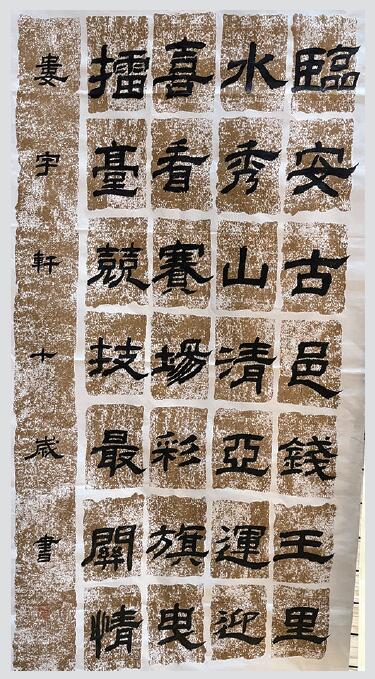 臨安古邑錢王里
水秀山清亞運迎
喜看賽場彩旗曳
擂臺競技最關情
婁宇軒十歲書